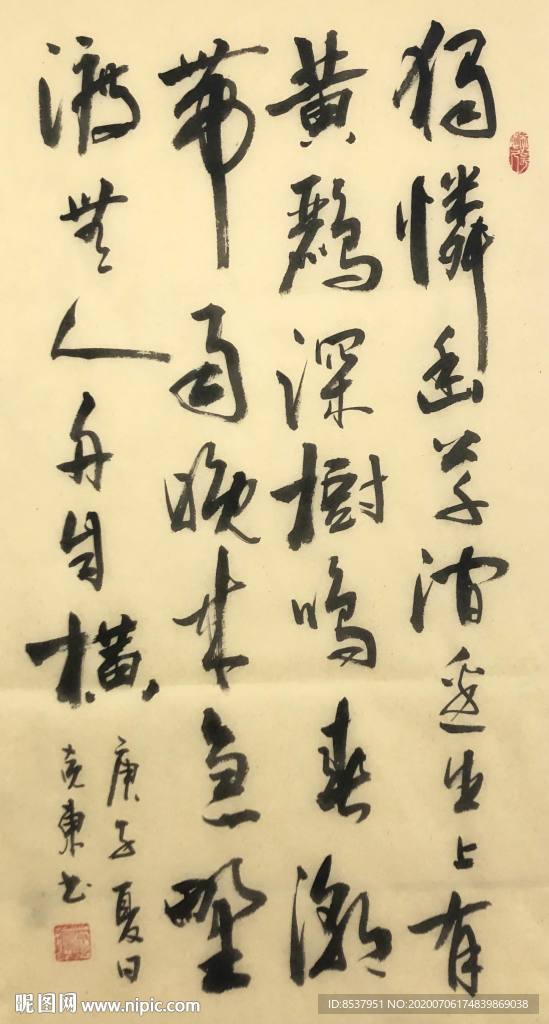 獨憐幽草澗邊生上有
黃鸝深樹鳴春潮
帶雨晚來急野
渡無人舟自橫
庚子夏日
克東书
昵图网 www.nipic.com
ID:8537951 NO:20200706174839869038